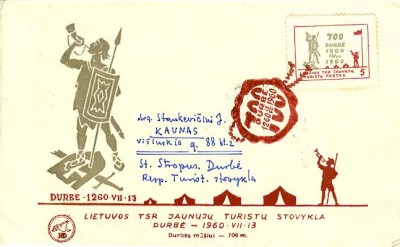 700
DURBĖ
1260
1960
LIETUVOS TSR JAUNŲJŲ
TURISTŲ PAŠTAS 5
700
DURBĖ
1260 1960
drg. Stankevičiui J.
KAUNAS
g. 88 bt. 2
St. Stropus. Durbė
Resp. Turist. stovykla
DURBĖ-1260-VII-13
LIETUVOS TSR JAUNŲJŲ TURISTŲ STOVYKLA
DURBĖ – 1960-VII-13
Durbės mūšiui – 700 m.